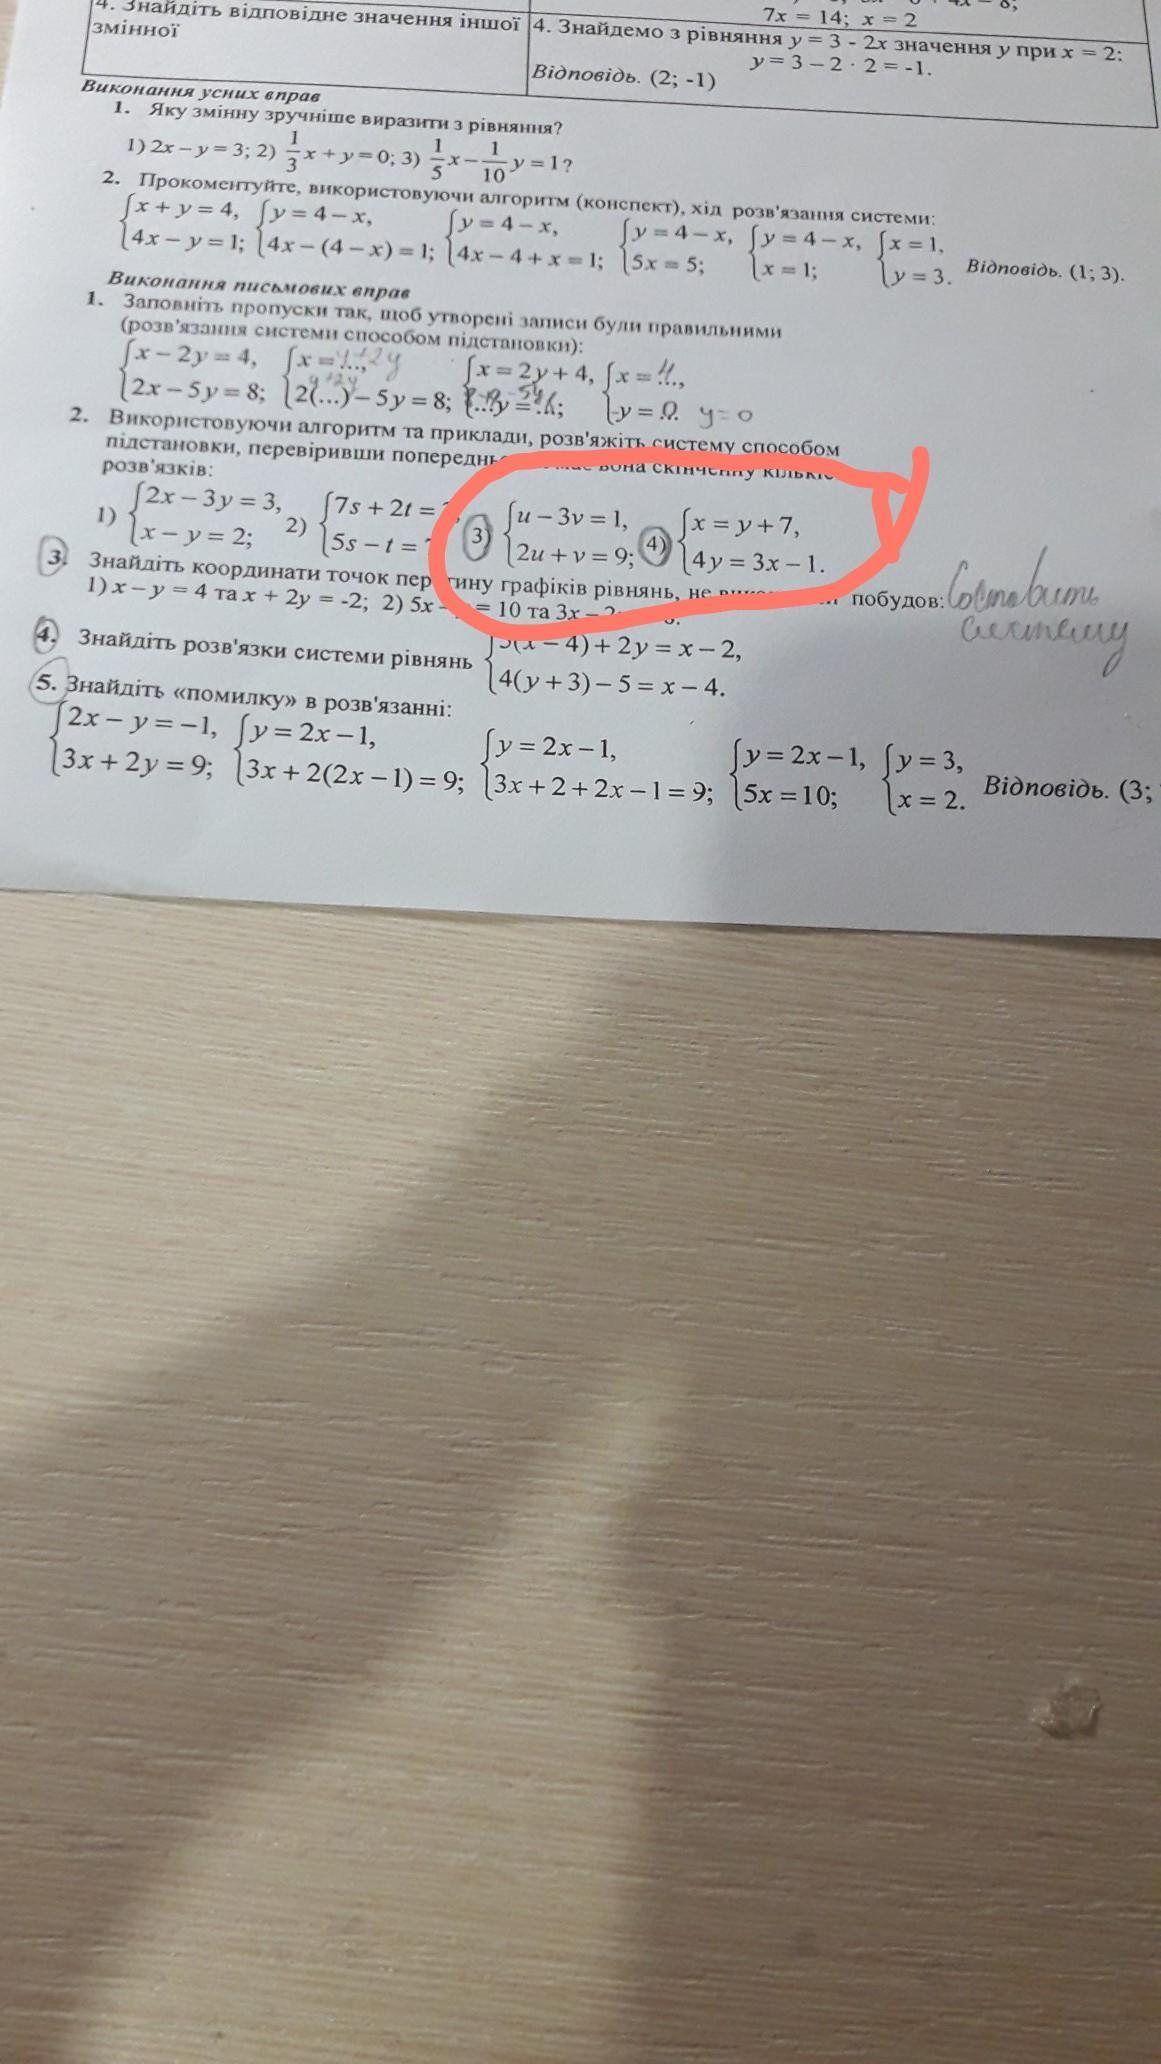 4. Знайдіть відповідне значення іншої
змінної
7x = 14; x = 2
4. Знайдемо з рівняння y = 3 - 2x значення y при x = 2:
y = 3 – 2 · 2 = -1.
Відповідь. (2; -1)
Виконання усних вправ
1. Яку змінну зручніше виразити з рівняння?
1) 2x – y = 3; 2) 1/3 x + y = 0; 3) 1/5 x – 1/10 y = 1?
2. Прокоментуйте, використовуючи алгоритм (конспект), хід розв'язання системи:
{x + y = 4, {y = 4 – x, {y = 4 – x, {y = 4 – x, {y = 4 – x, {x = 1,
4x – y = 1; 4x – (4 – x) = 1; 4x – 4 + x = 1; 5x = 5; x = 1; y = 3. Відповідь. (1; 3).
Виконання письмових вправ
1. Заповніть пропуски так, щоб утворені записи були правильними
(розв'язання системи способом підстановки):
{x – 2y = 4, {x = ..., 4+2y {x = 2y + 4, {x = ..., 4
2x – 5y = 8; 2(...) – 5y = 8; ...y = ...; y = 0. y = 0
2. Використовуючи алгоритм та приклади, розв'яжіть систему способом
підстановки, перевіривши вона скінченну
розв'язків:
1) {2x – 3y = 3, 2) {7s + 2t = 3) {u – 3v = 1, 4) {x = y + 7,
x – y = 2; 5s – t = 2u + v = 9; 4y = 3x – 1.
3. Знайдіть координати точок графіків рівнянь, не побудов: Составить
1) x – y = 4 та x + 2y = -2; 2) 5x = 10 та 3x систему
4. Знайдіть розв'язки системи рівнянь {(x – 4) + 2y = x – 2,
4(y + 3) – 5 = x – 4.
5. Знайдіть «помилку» в розв'язанні:
{2x – y = –1, {y = 2x – 1, {y = 2x – 1, {y = 2x – 1, {y = 3,
3x + 2y = 9; 3x + 2(2x – 1) = 9; 3x + 2 + 2x – 1 = 9; 5x = 10; x = 2. Відповідь. (3;